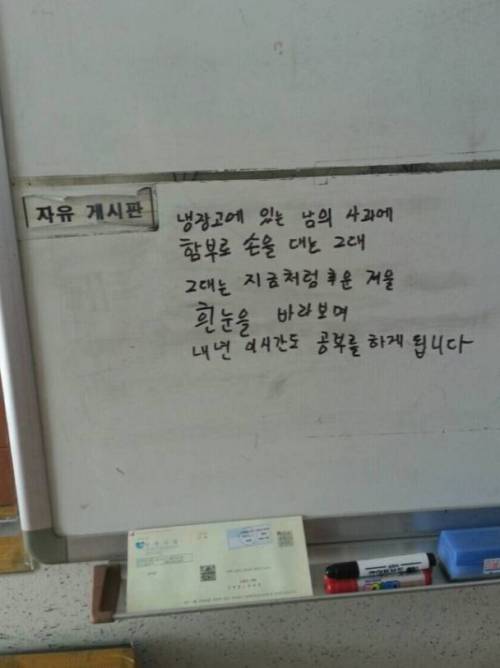 자유 게시판
냉장고에 있는 남의 사과에
함부로 손을 대는 그대
그대는 지금처럼 추운 겨울
흰눈을 바라보며
내년 이시간도 공부를 하게 됩니다